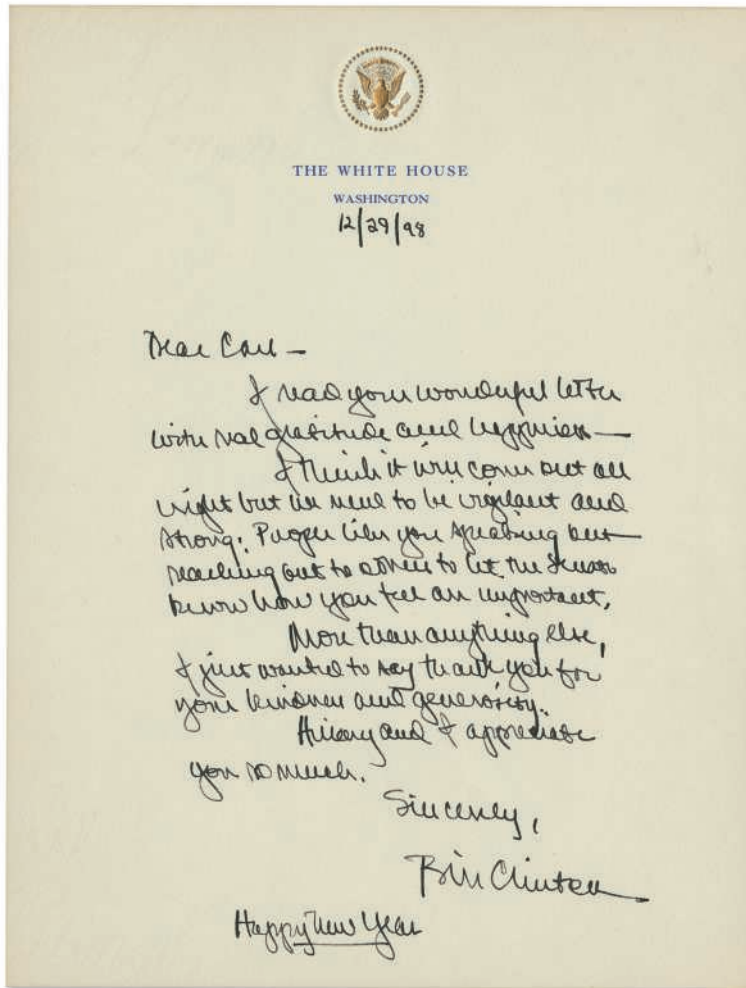 THE WHITE HOUSE
WASHINGTON
12/29/98
Dear Carl —
I read your wonderful letter
with real gratitude and happiness —
I think it will come out all
right but we need to be vigilant and
strong. People like you speaking out
reaching out to others to let the Senate
know how you feel are important.
More than anything else,
I just wanted to say thank you for
your kindness and generosity.
Hillary and I appreciate
you so much.
Sincerely,
Bill Clinton
Happy New Year